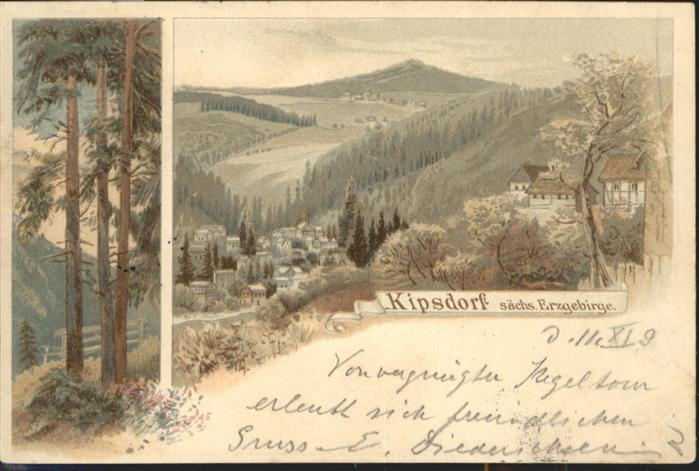 Kipsdorf sächs. Erzgebirge.
D. 11. XI. 9
Von vergnügter Kegeltour
erlaubt sich freundlichen
Gruss E. Diederichsen